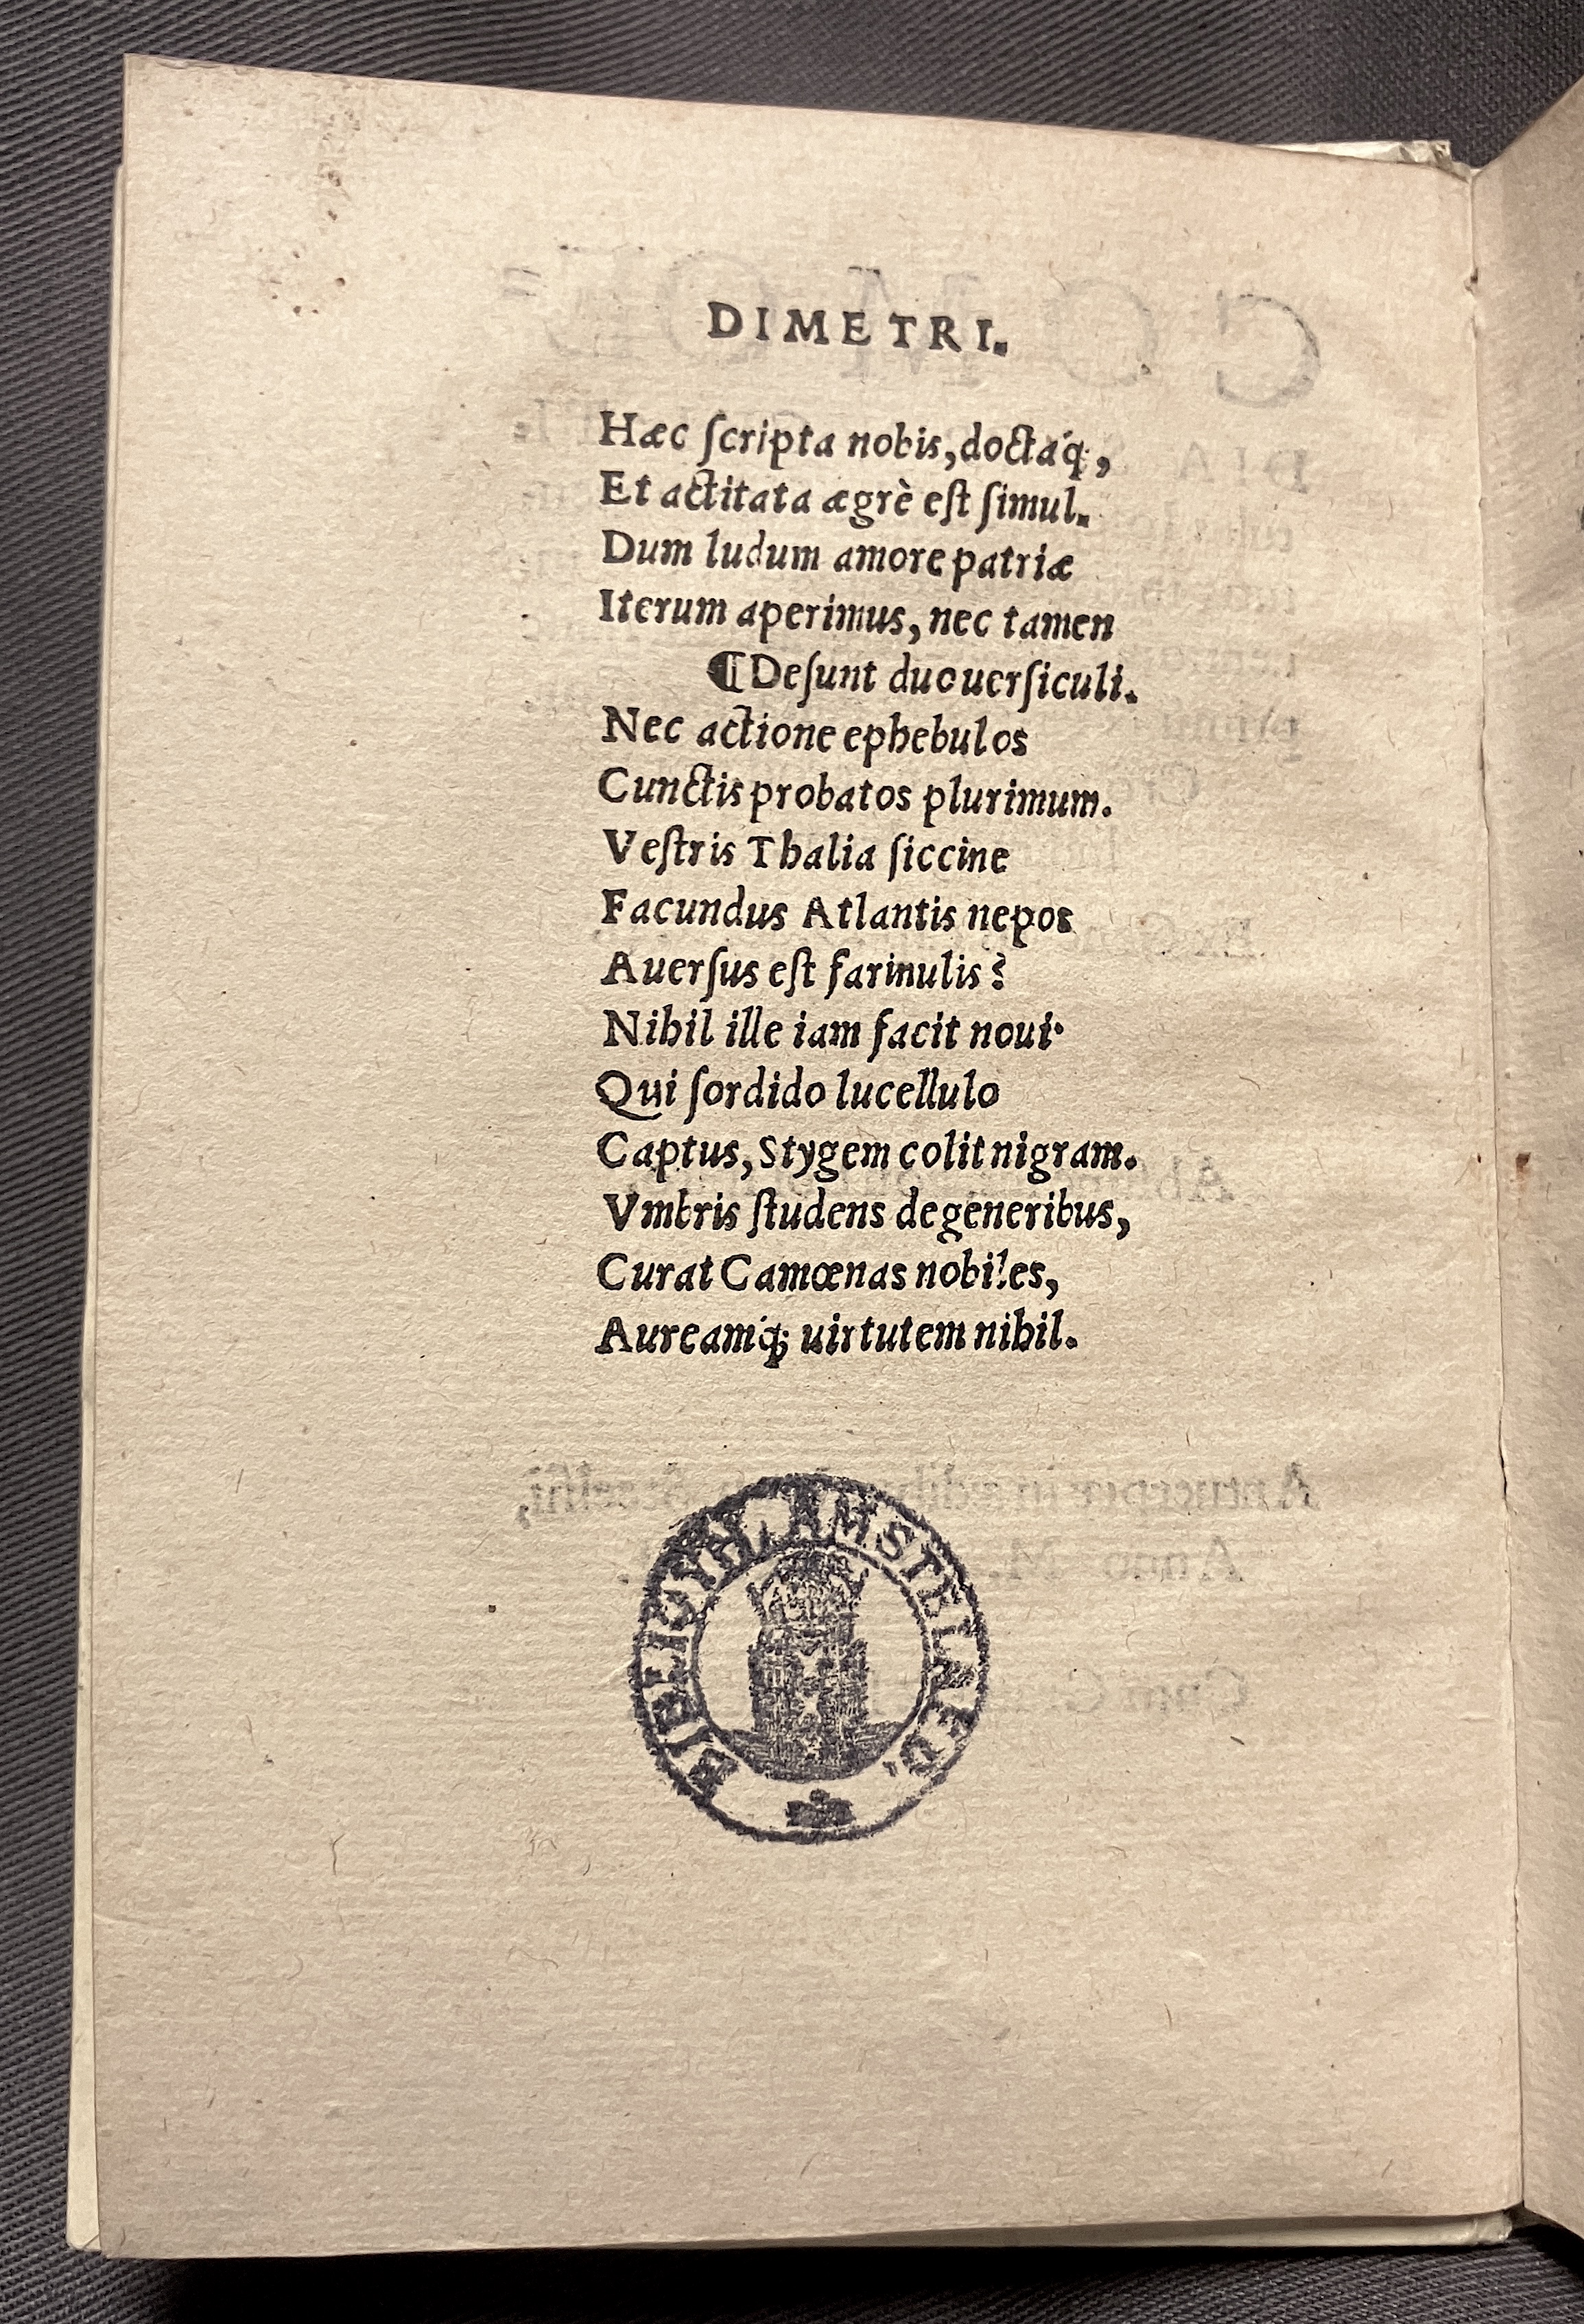 DIMETRI.
Hæc ſcripta nobis, doctáq;,
Et actitata ægrè eſt ſimul.
Dum ludum amore patriæ
Iterum aperimus, nec tamen
¶ Deſunt duo uerſiculi.
Nec actione ephebulos
Cunctis probatos plurimum.
Veſtris Thalia ſiccine
Facundus Atlantis nepos
Auerſus eſt farinulis?
Nihil ille iam facit noui·
Qui ſordido lucellulo
Captus, Stygem colit nigram.
Vmbris ſtudens degeneribus,
Curat Camœnas nobiles,
Aureamq́; uirtutem nihil.
BIBLIOTH. AMSTELAED.